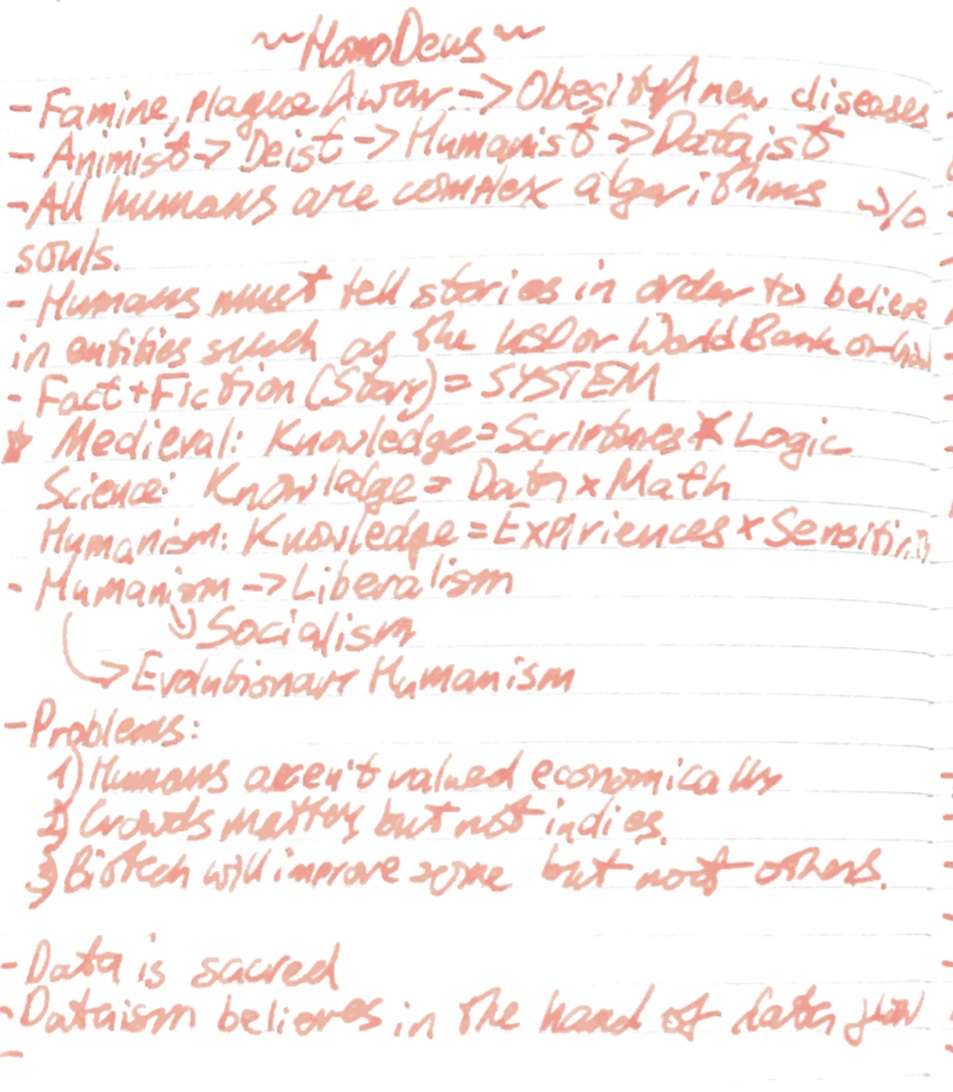 ~HomoDeus~
- Famine, Plague & war -> Obesity & new diseases
- Animist -> Deist -> Humanist -> Dataist
- All humans are complex algorithms w/o
souls.
- Humans must tell stories in order to believe
in entities such as the USD or World Bank or
- Fact + Fiction (Story) = SYSTEM
* Medieval: Knowledge = Scriptures x Logic
Science: Knowledge = Data x Math
Humanism: Knowledge = Expiriences x Sensitivity
- Humanism -> Liberalism
-> Socialism
-> Evolutionary Humanism
- Problems:
1) Humans aren't valued economically
2) Crowds matter but not indies.
3) Biotech will improve some but not others.
- Data is sacred
- Dataism believes in the hand of data flow